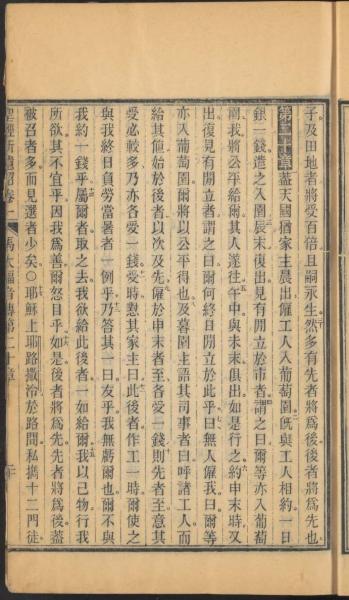 子及田地者將受百倍且嗣永生然多有先者將爲後後者將爲先也
第二十章蓋天國猶家主晨出僱工人入葡萄園旣與工人相約一日
銀一錢遣之入園辰末復出見有閒立於市者謂之曰爾等亦入葡萄
園我將公平給爾其人遂往午中與未末俱出如是行之約申末時又
出復見有閒立者謂之曰爾何終日閒立於此乎曰無人僱我曰爾等
亦入葡萄園爾將以公平得也及暮園主語其司事者曰呼諸工人而
給其値始於後者以次及先僱於申末者至各受一錢則先者至意其
受必較多乃亦各受一錢受時懟其家主曰此後者作工一時爾使之
與我終日負勞當暑者一例乎乃答其一曰友乎我無虧爾也爾不與
我約一錢乎屬爾者取之去我欲給此後者一如給爾我以己物行我
所欲其不宜乎因我爲善爾怒目乎如是後者將爲先先者將爲後蓋
被召者多而見選者少矣○耶穌上耶路撒冷於路間私擕十二門徒
聖經新遺詔卷一 馬太福音傳第二十章